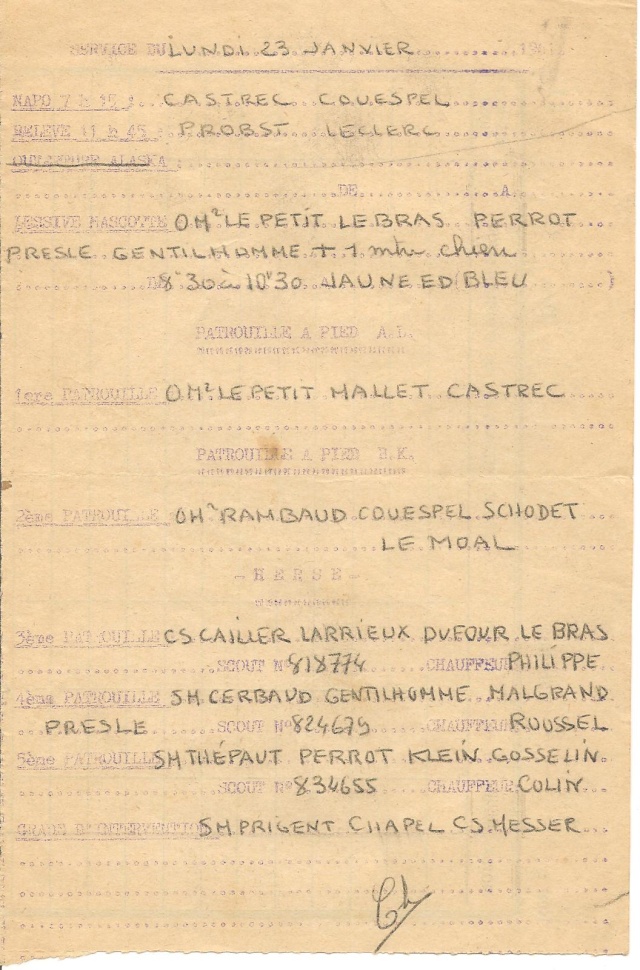 SERVICE DU LUNDI 23 JANVIER
NAPO 7 h 45 : CASTREC COUESPEL
RELEVE 11 h 45 : PROBST LECLERC
ALASKA :
DE A
LESSIVE MASCOTTE OM2 LE PETIT LE BRAS PERROT
PRESLE GENTILHOMME + 1 mtr chien
DE 8h30 à 10h30 JAUNE ED (BLEU )
PATROUILLE A PIED A.L.
1ère PATROUILLE OM2 LE PETIT MALLET CASTREC
PATROUILLE A PIED
2ème PATROUILLE OM2 RAMBAUD COUESPEL SCHODET
LE MOAL
- HERSE -
3ème PATROUILLE CS CAILLER LARRIEUX DUFOUR LE BRAS
SCOUT N° 818774 CHAUFFEUR PHILIPPE
4ème PATROUILLE SM CERBAUD GENTILHOMME MALGRAND
PRESLE SCOUT N° 824679 CHAUFFEUR ROUSSEL
5ème PATROUILLE SM THÉPAUT PERROT KLEIN GOSSELIN
SCOUT N° 834655 CHAUFFEUR COLIN
GRADE D'INTERVENTION SM PRIGENT CHAPEL CS MESSER